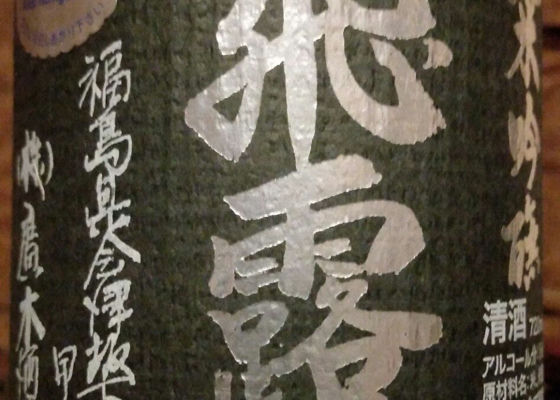 米吟醸
清酒
アルコール
原材料名:米
飛露
福島県会津坂下
甲
(株)廣木酒